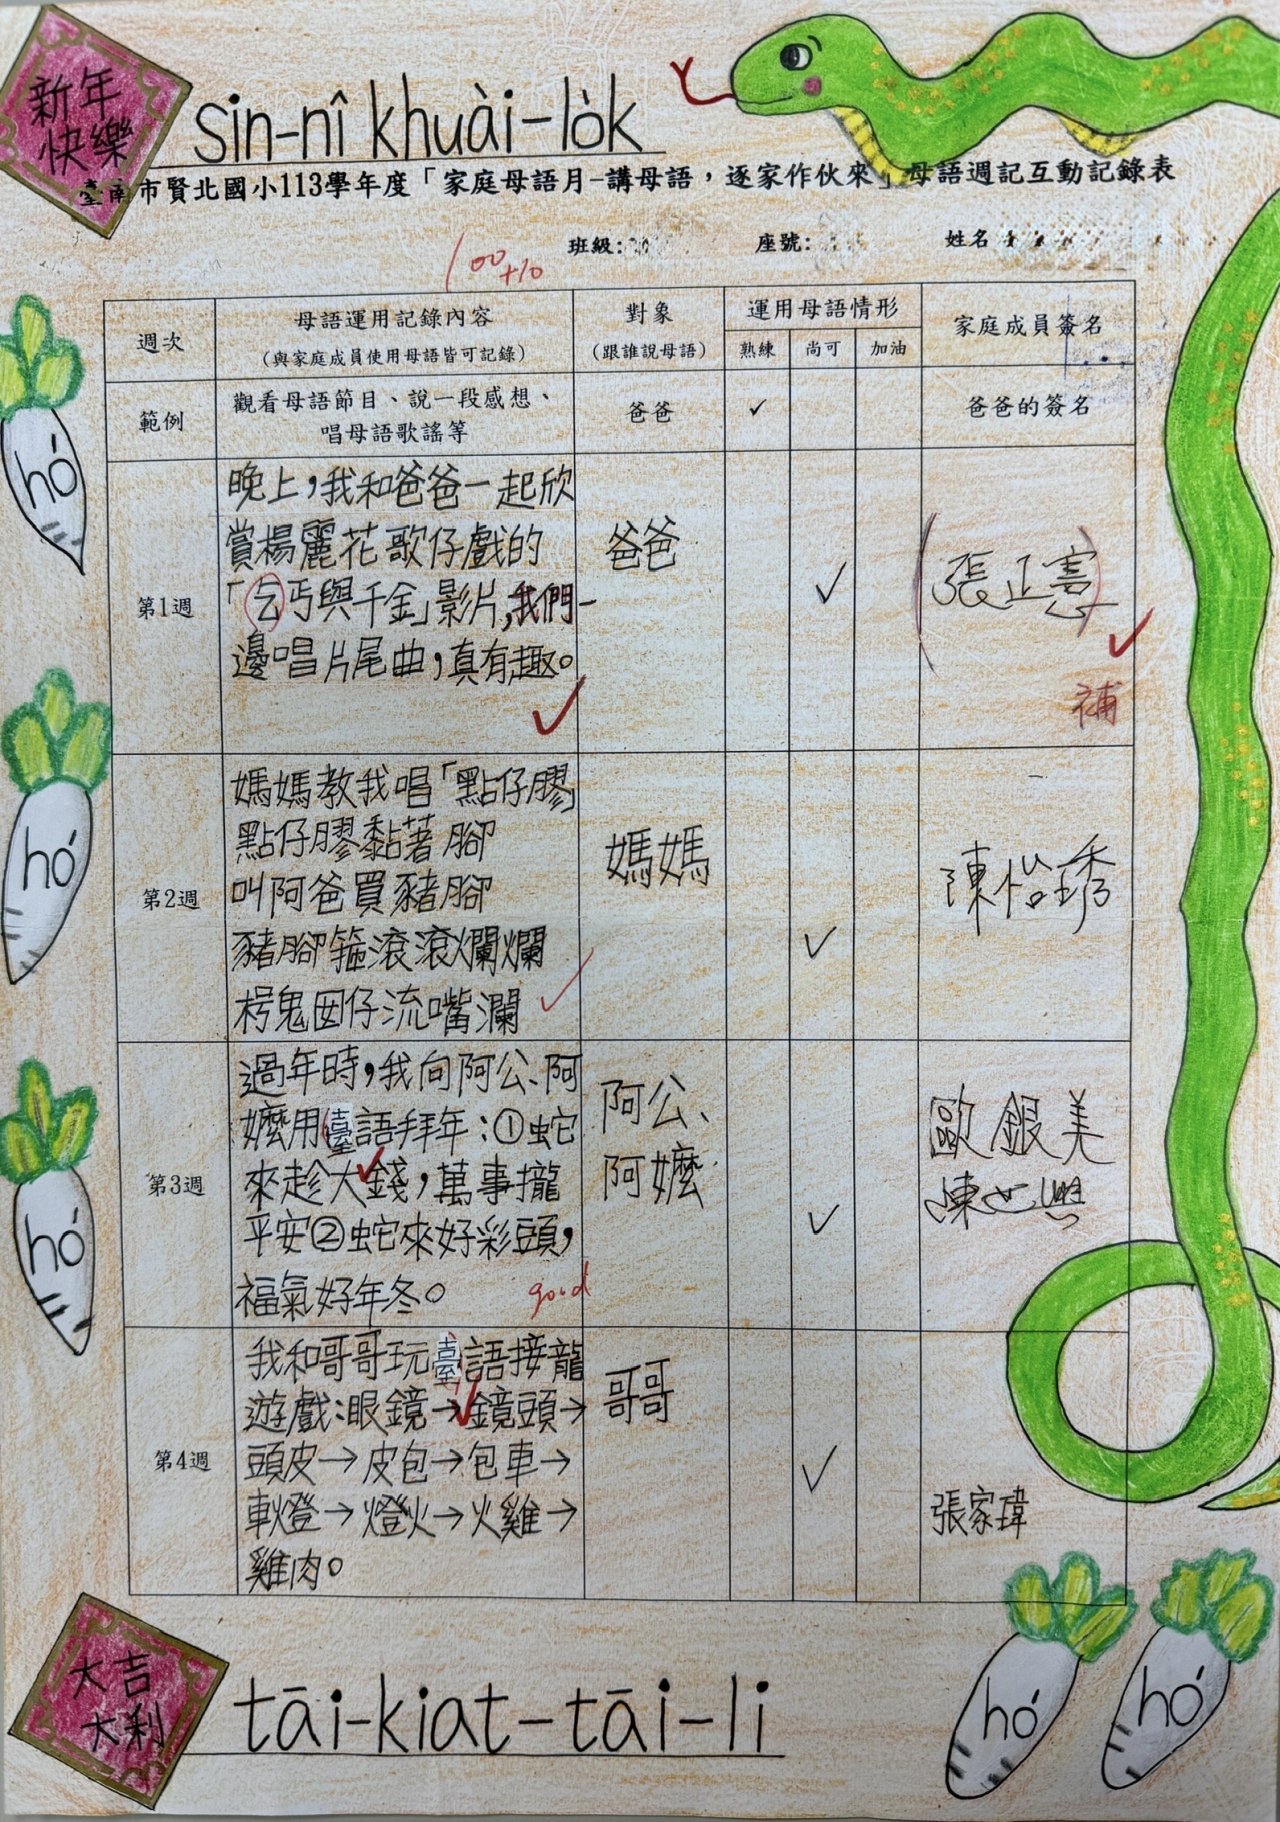 新年
快樂
sin-nî khuài-lo̍k
臺南市賢北國小113學年度「家庭母語月-講母語，逐家作伙來」母語週記互動記錄表
100
+10
班級:
座號:
姓名
週次
母語運用記錄內容
（與家庭成員使用母語皆可記錄）
對象
（跟誰說母語）
運用母語情形
熟練
尚可
加油
家庭成員簽名
範例
觀看母語節目、說一段感想、
唱母語歌謠等
爸爸
✓
爸爸的簽名
第1週
晚上，我和爸爸一起欣
賞楊麗花歌仔戲的
「乞丐與千金」影片,我們一
邊唱片尾曲，真有趣。
爸爸
✓
(張正憲)
補
第2週
媽媽教我唱「點仔膠」
點仔膠黏著腳
叫阿爸買豬腳
豬腳箍滾滾爛爛
枵鬼囡仔流嘴瀾
媽媽
✓
陳怡琇
第3週
過年時，我向阿公、阿
嬤用臺語拜年：①蛇
來趁大錢，萬事攏
平安②蛇來好彩頭，
福氣好年冬。
good
阿公、
阿嬤
✓
歐銀美
第4週
我和哥哥玩臺語接龍
遊戲:眼鏡→鏡頭→
頭皮→皮包→包車→
車燈→燈火→火雞→
雞肉。
哥哥
✓
張家瑋
hó
hó
hó
hó
hó
大吉
大利
tāi-kiat-tāi-li